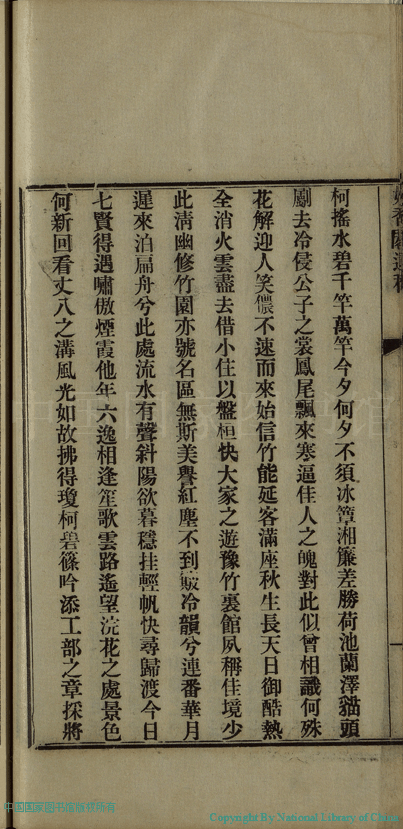 柯搖水碧千竿萬竿今夕何夕不須冰簟湘簾差勝荷池蘭澤貓頭
劚去冷侵公子之裳鳳尾飄來寒逼佳人之魄對此似曾相識何殊
花解迎人笑儂不速而來始信竹能延客滿座秋生長天日御酷熱
全消火雲盡去借小住以盤桓快大家之遊豫竹裏館夙稱佳境少
此淸幽修竹園亦號名區無斯美譽紅塵不到敲冷韻兮連番華月
遲來泊扁舟兮此處流水有聲斜陽欲暮穩挂輕帆快尋歸渡今日
七賢得遇嘯傲煙霞他年六逸相逢笙歌雲路遙望浣花之處景色
何新回看丈八之溝風光如故拂得瓊柯碧篠吟添工部之章採將
中国国家图书馆版权所有
Copyright By National Library of China